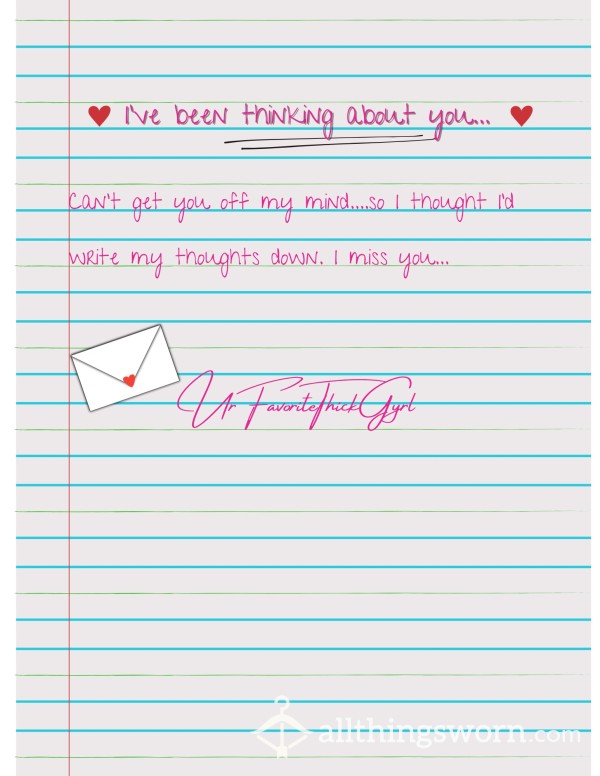 I've been thinking about you...
Can't get you off my mind....so I thought I'd
write my thoughts down. I miss you...
Ur FavoriteThickGyrl
allthingsworn.com